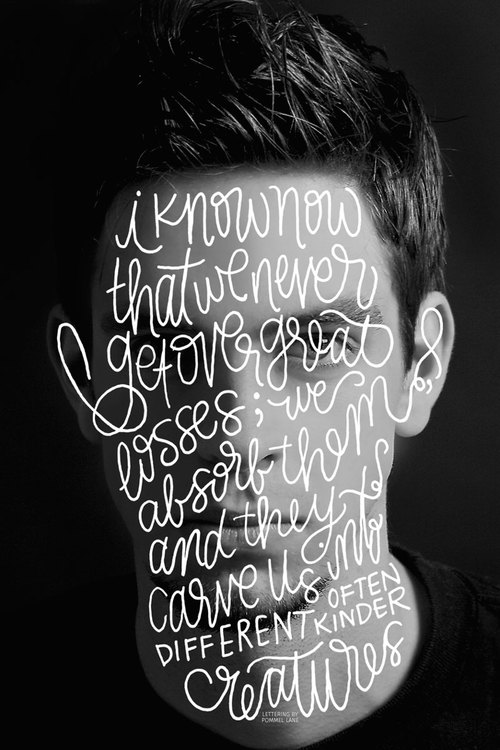 i know now
that we never
get over great
losses; we
absorb them,
and they
carve us into
different, often
kinder
creatures
LETTERING BY
POMMEL LANE